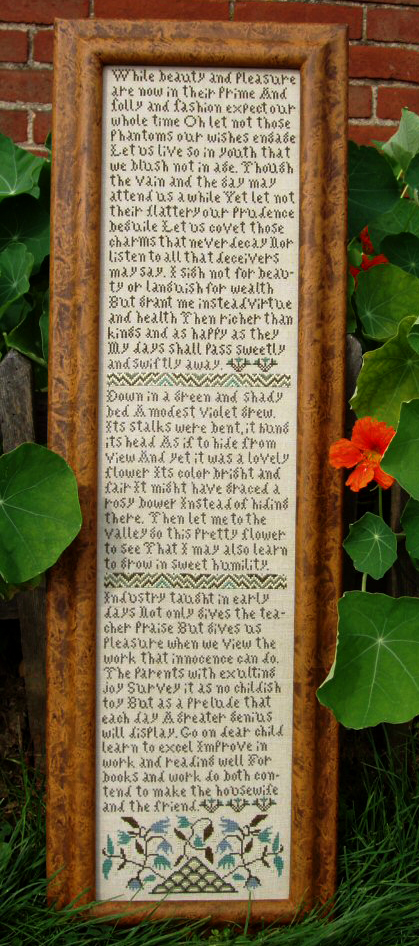 While beauty and Pleasure
are now in their Prime And
folly and fashion expect our
whole time Oh let not those
Phantoms our wishes engage
Let us live so in youth that
we blush not in age. Though
the vain and the gay may
attend us a while Yet let not
their flattery our Prudence
beguile Let us covet those
charms that never decay Nor
listen to all that deceivers
may say. I sigh not for beau-
ty or languish for wealth
But grant me instead virtue
and health Then richer than
kings and as happy as they
My days shall Pass sweetly
and swiftly away.
Down in a green and shady
bed A modest violet grew.
Its stalks were bent, it hung
its head As if to hide from
view And yet it was a lovely
flower Its color bright and
fair It might have graced a
rosy bower Instead of hiding
there. Then let me to the
valley go this Pretty flower
to see That I may also learn
to grow in sweet humility.
Industry taught in early
days Not only gives the tea-
cher Praise But gives us
Pleasure when we view the
work that innocence can do.
The Parents with exulting
joy Survey it as no childish
toy But as a Prelude that
each day A greater genius
will display. Go on dear child
learn to excel Improve in
work and reading well For
books and work do both con-
tend to make the housewife
and the friend.